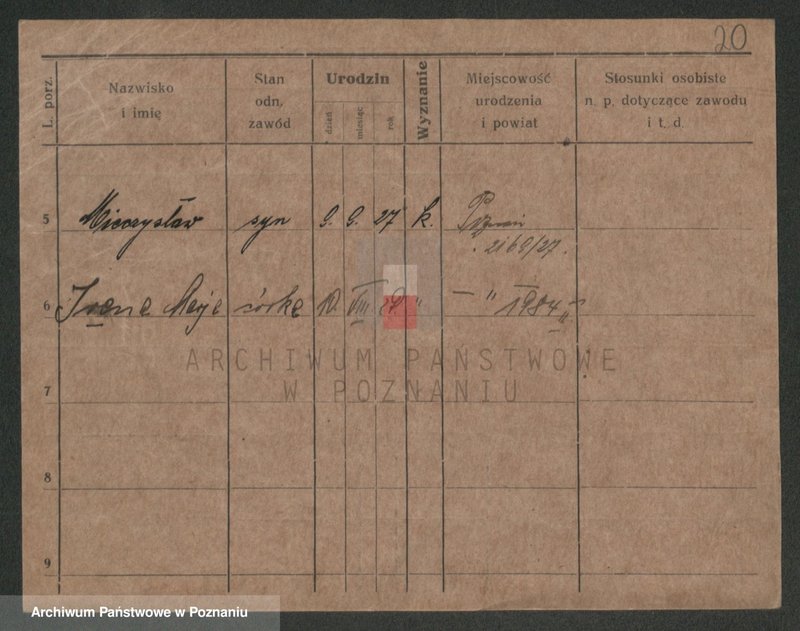 20
L. porz.
Nazwisko
i imię
Stan
odn.
zawód
Urodzin
dzień
miesiąc
rok
Wyznanie
Miejscowość
urodzenia
i powiat
Stosunki osobiste
n. p. dotyczące zawodu
i t. d.
5 Mieczysław syn 27 k.
2169/27.
6 córka 10. VIII " — "
7
8
9
ARCHIWUM PAŃSTWOWE
W POZNANIU
Archiwum Państwowe w Poznaniu